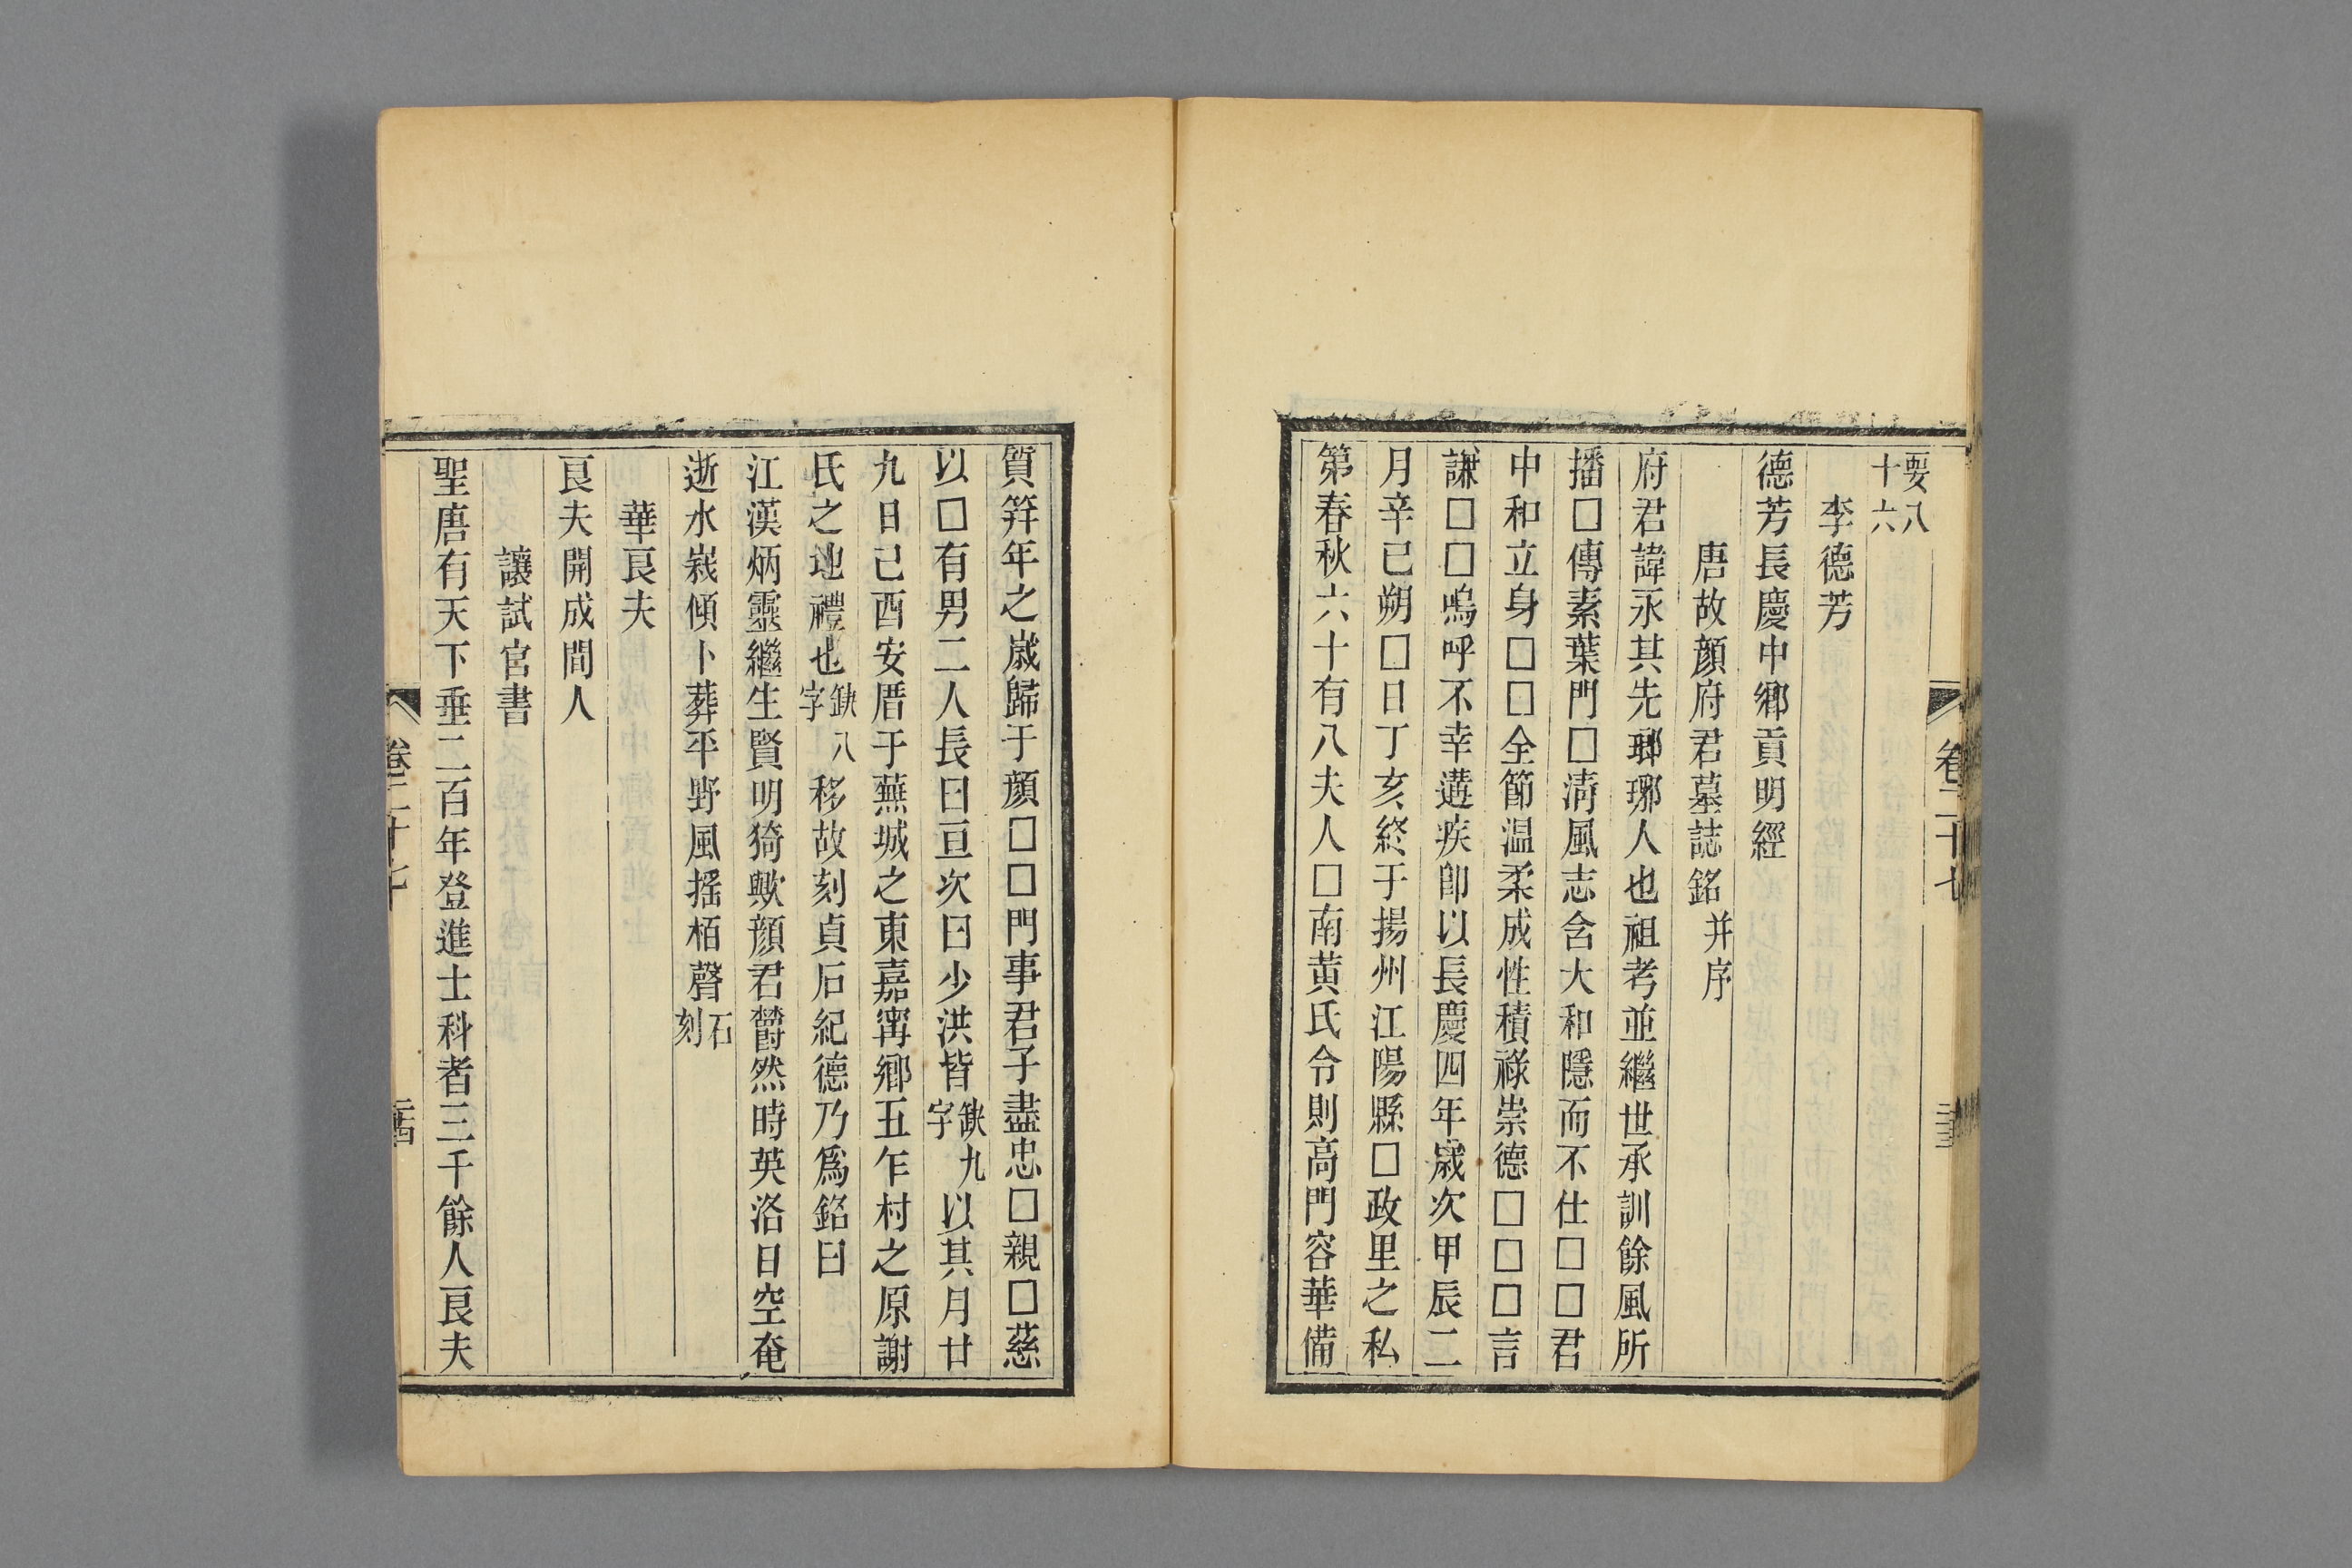 要八十六
李德芳
德芳長慶中鄉貢明經
唐故顏府君墓誌銘并序
府君諱永其先瑯琊人也祖考並繼世承訓餘風所
播□傳素葉門□淸風志含大和隱而不仕□□君
中和立身□□全節溫柔成性積祿崇德□□□言
謙□□嗚呼不幸遘疾卽以長慶四年歲次甲辰二
月辛巳朔□日丁亥終于揚州江陽縣□政里之私
第春秋六十有八夫人□南黃氏令則高門容華備
質笄年之歲歸于顏□□門事君子盡忠□親□慈
以□有男二人長曰亘次曰少洪皆缺九字以其月廿
九日己酉安厝于蕪城之東嘉甯鄉五乍村之原謝
氏之地禮也缺八字移故刻貞石紀德乃爲銘曰
江漢炳靈繼生賢明猗歟顏君欝然時英洛日空奄
逝水峩傾卜葬平野風搖栢聲石刻
華良夫
良夫開成間人
讓試官書
聖唐有天下垂二百年登進士科者三千餘人良夫
卷二十七
卷二十七